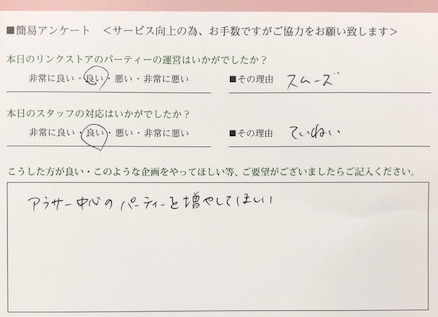 ■簡易アンケート ＜サービス向上の為、お手数ですがご協力をお願い致します＞
本日のリンクストアのパーティーの運営はいかがでしたか？
非常に良い・良い・悪い・非常に悪い ■その理由 スムーズ
本日のスタッフの対応はいかがでしたか？
非常に良い・良い・悪い・非常に悪い ■その理由 ていねい
こうした方が良い・このような企画をやってほしい等、ご要望がございましたらご記入ください。
アラサー中心のパーティーを増やしてほしい